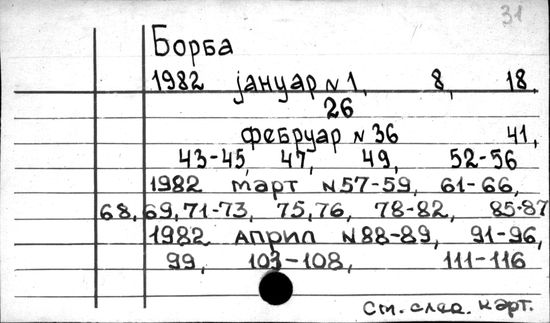 31
Борба
1982 јануар N 1, 8, 18,
26
фебруар N 36 41,
43-45, 47, 49, 52-56
1982 март N57-59, 61-66,
68, 69, 71-73, 75, 76, 78-82, 85-87
1982 април N88-89, 91-96,
99, 103-108, 111-116
См. след. карт.